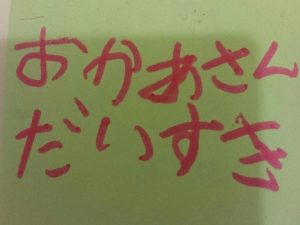 おかあさん
だいすき